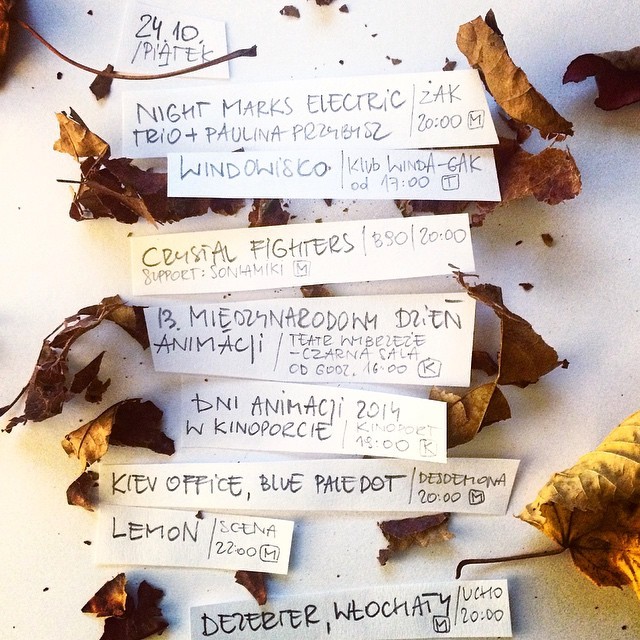 24.10.
/PIĄTEK
NIGHT MARKS ELECTRIC / ŻAK
TRIO + PAULINA PRZYBYSZ / 20:00 M
WINDOWISKO / KLUB WINDA-GAK
od 17:00 T
CRYSTAL FIGHTERS / B90 / 20:00
SUPPORT: SONIAMIKI M
13. MIĘDZYNARODOWY DZIEŃ
ANIMACJI / TEATR WYBRZEŻE
- CZARNA SALA
OD GODZ. 16:00 K
DNI ANIMACJI 2014
W KINOPORCIE / KINOPORT
19:00 K
KIEV OFFICE, BLUE PALE DOT / DESDEMONA
20:00 M
LEMON / SCENA
22:00 M
DEZERTER, WŁOCHATY / UCHO
M 20:00